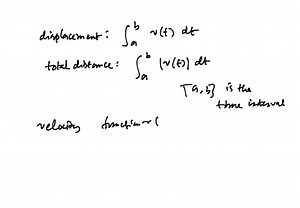 displacement: ∫_a^b v(t) dt
total distance: ∫_a^b |v(t)| dt
[a, b] is the
time interval
velocity function v(